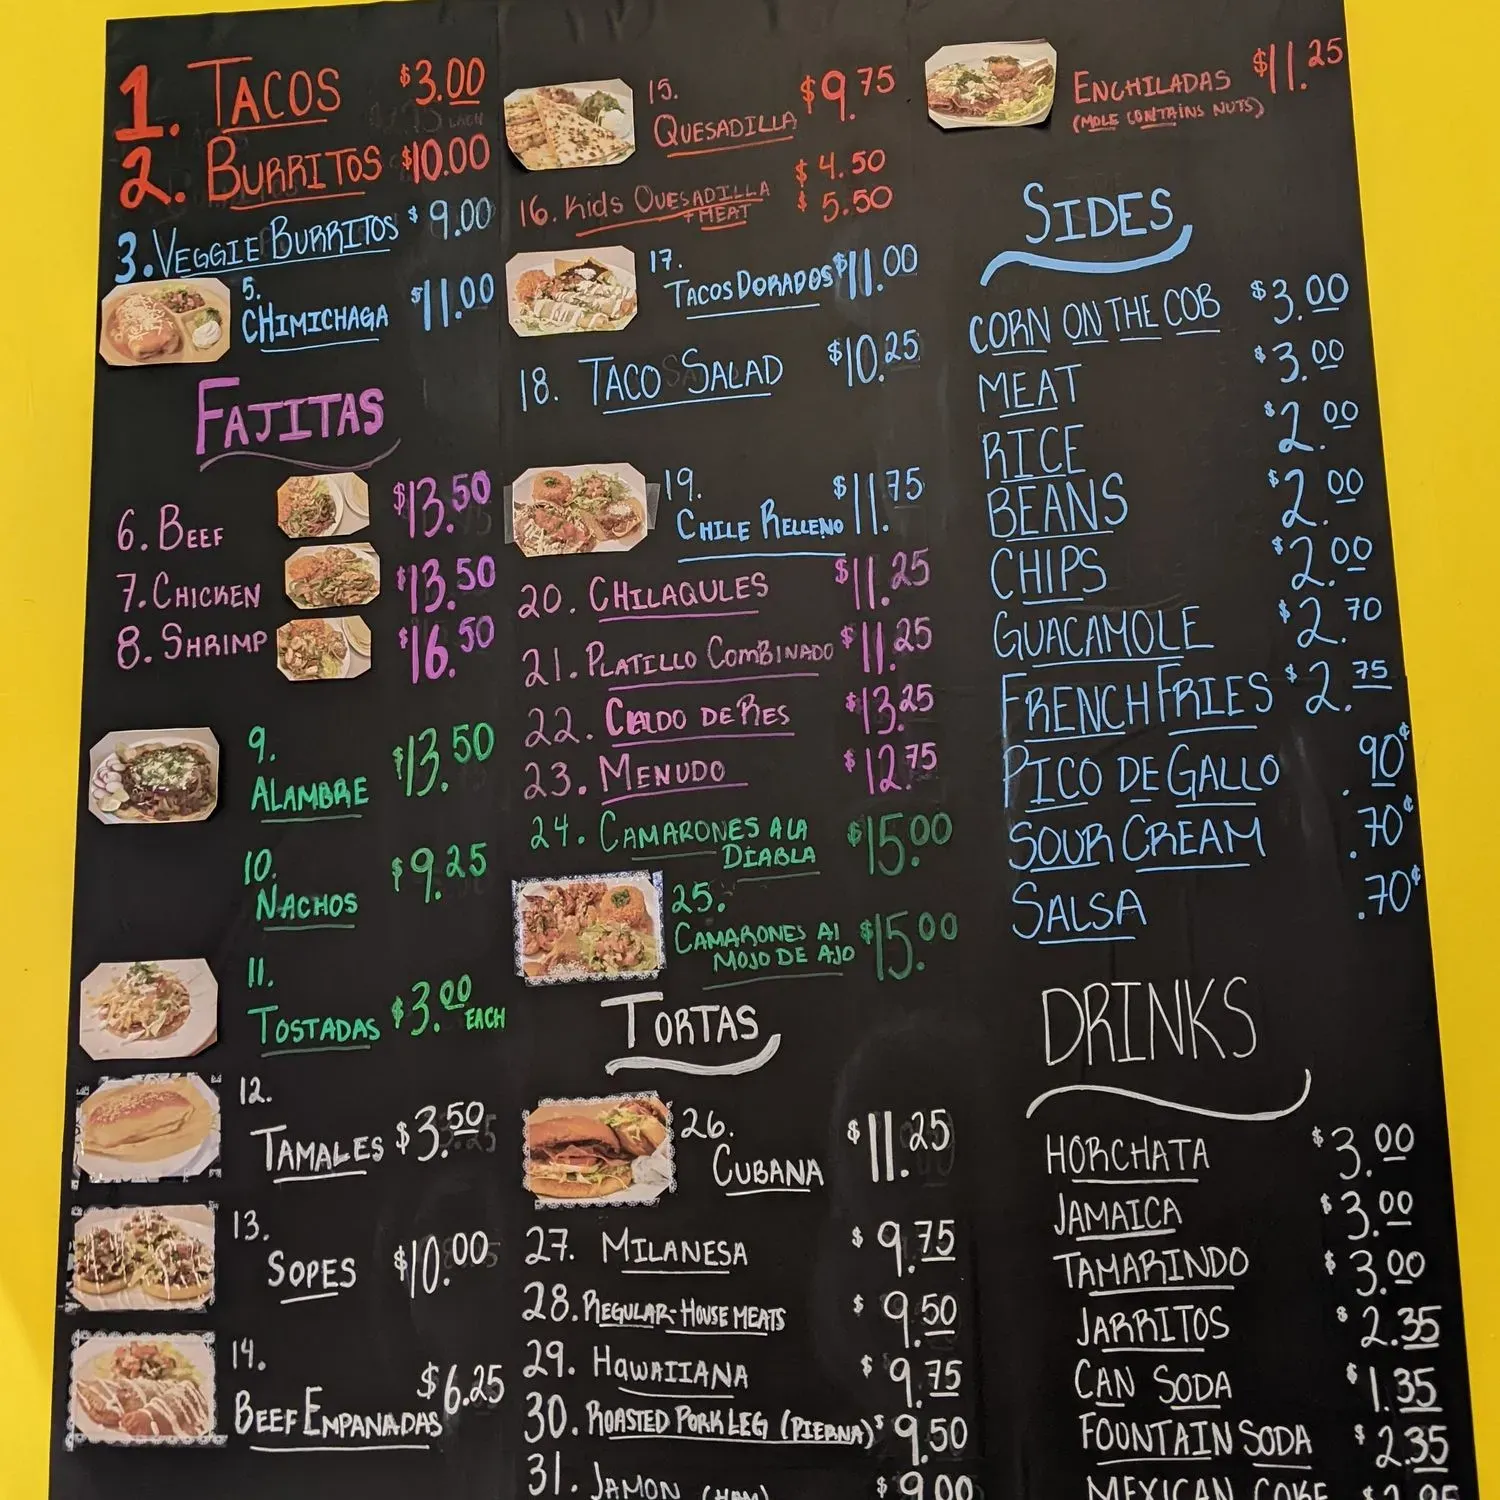 1. TACOS $3.00
2. BURRITOS $10.00
3. VEGGIE BURRITOS $9.00
5.
CHIMICHAGA $11.00
FAJITAS
6. BEEF $13.50
7. CHICKEN $13.50
8. SHRIMP $16.50
9.
ALAMBRE $13.50
10.
NACHOS $9.25
11.
TOSTADAS $3.00 EACH
12.
TAMALES $3.50
13.
SOPES $10.00
14.
BEEF EMPANADAS $6.25
15.
QUESADILLA $9.75
16. KIDS QUESADILLA $4.50
+ MEAT $5.50
17.
TACOS DORADOS $11.00
18. TACO SALAD $10.25
19.
CHILE RELLENO $11.75
20. CHILAQULES $11.25
21. PLATILLO COMBINADO $11.25
22. CALDO DE RES $13.25
23. MENUDO $12.75
24. CAMARONES A LA
DIABLA $15.00
25.
CAMARONES Al
MOJO DE AJO $15.00
TORTAS
26.
CUBANA $11.25
27. MILANESA $9.75
28. REGULAR-HOUSE MEATS $9.50
29. HAWAIIANA $9.75
30. ROASTED PORK LEG (PIERNA) $9.50
31. JAMON (HAM) $9.00
ENCHILADAS $11.25
(MOLE CONTAINS NUTS)
SIDES
CORN ON THE COB $3.00
MEAT $3.00
RICE $2.00
BEANS $2.00
CHIPS $2.00
GUACAMOLE $2.70
FRENCH FRIES $2.75
PICO DE GALLO .90¢
SOUR CREAM .70¢
SALSA .70¢
DRINKS
HORCHATA $3.00
JAMAICA $3.00
TAMARINDO $3.00
JARRITOS $2.35
CAN SODA $1.35
FOUNTAIN SODA $2.35
MEXICAN COKE